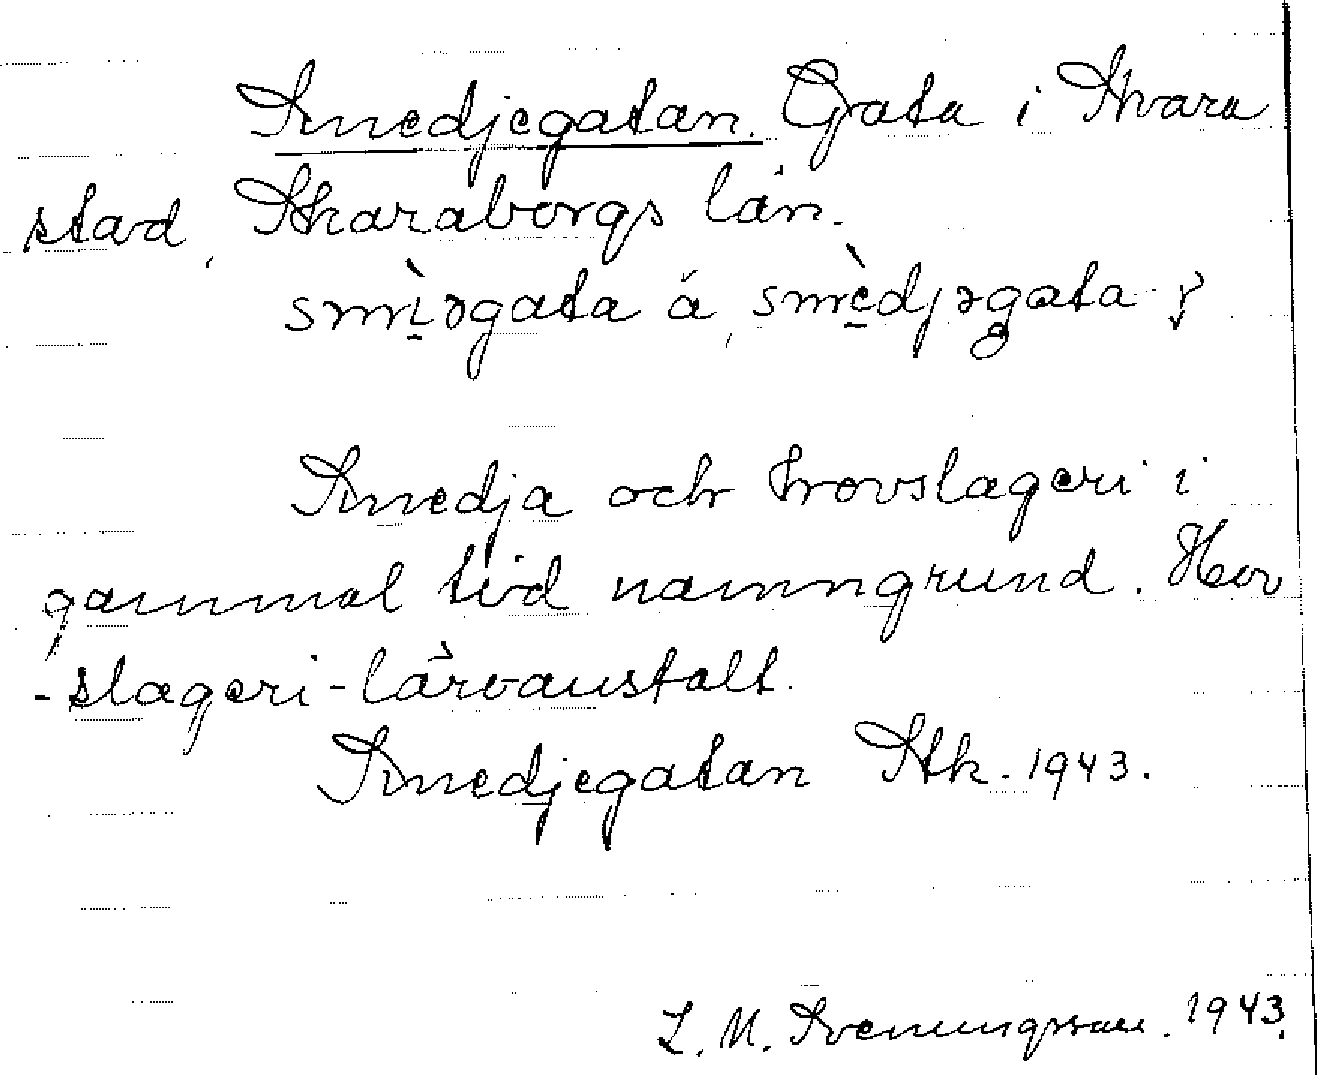 Smedjegatan. Gata i Skara
stad, Skaraborgs län.
smìəgata å, smèdjəgata
Smedja och hovslageri i
gammal tid namngrund. Hov
-slageri-läroanstalt.
Smedjegatan Stk. 1943.
L. M. Svenungsson. 1943.